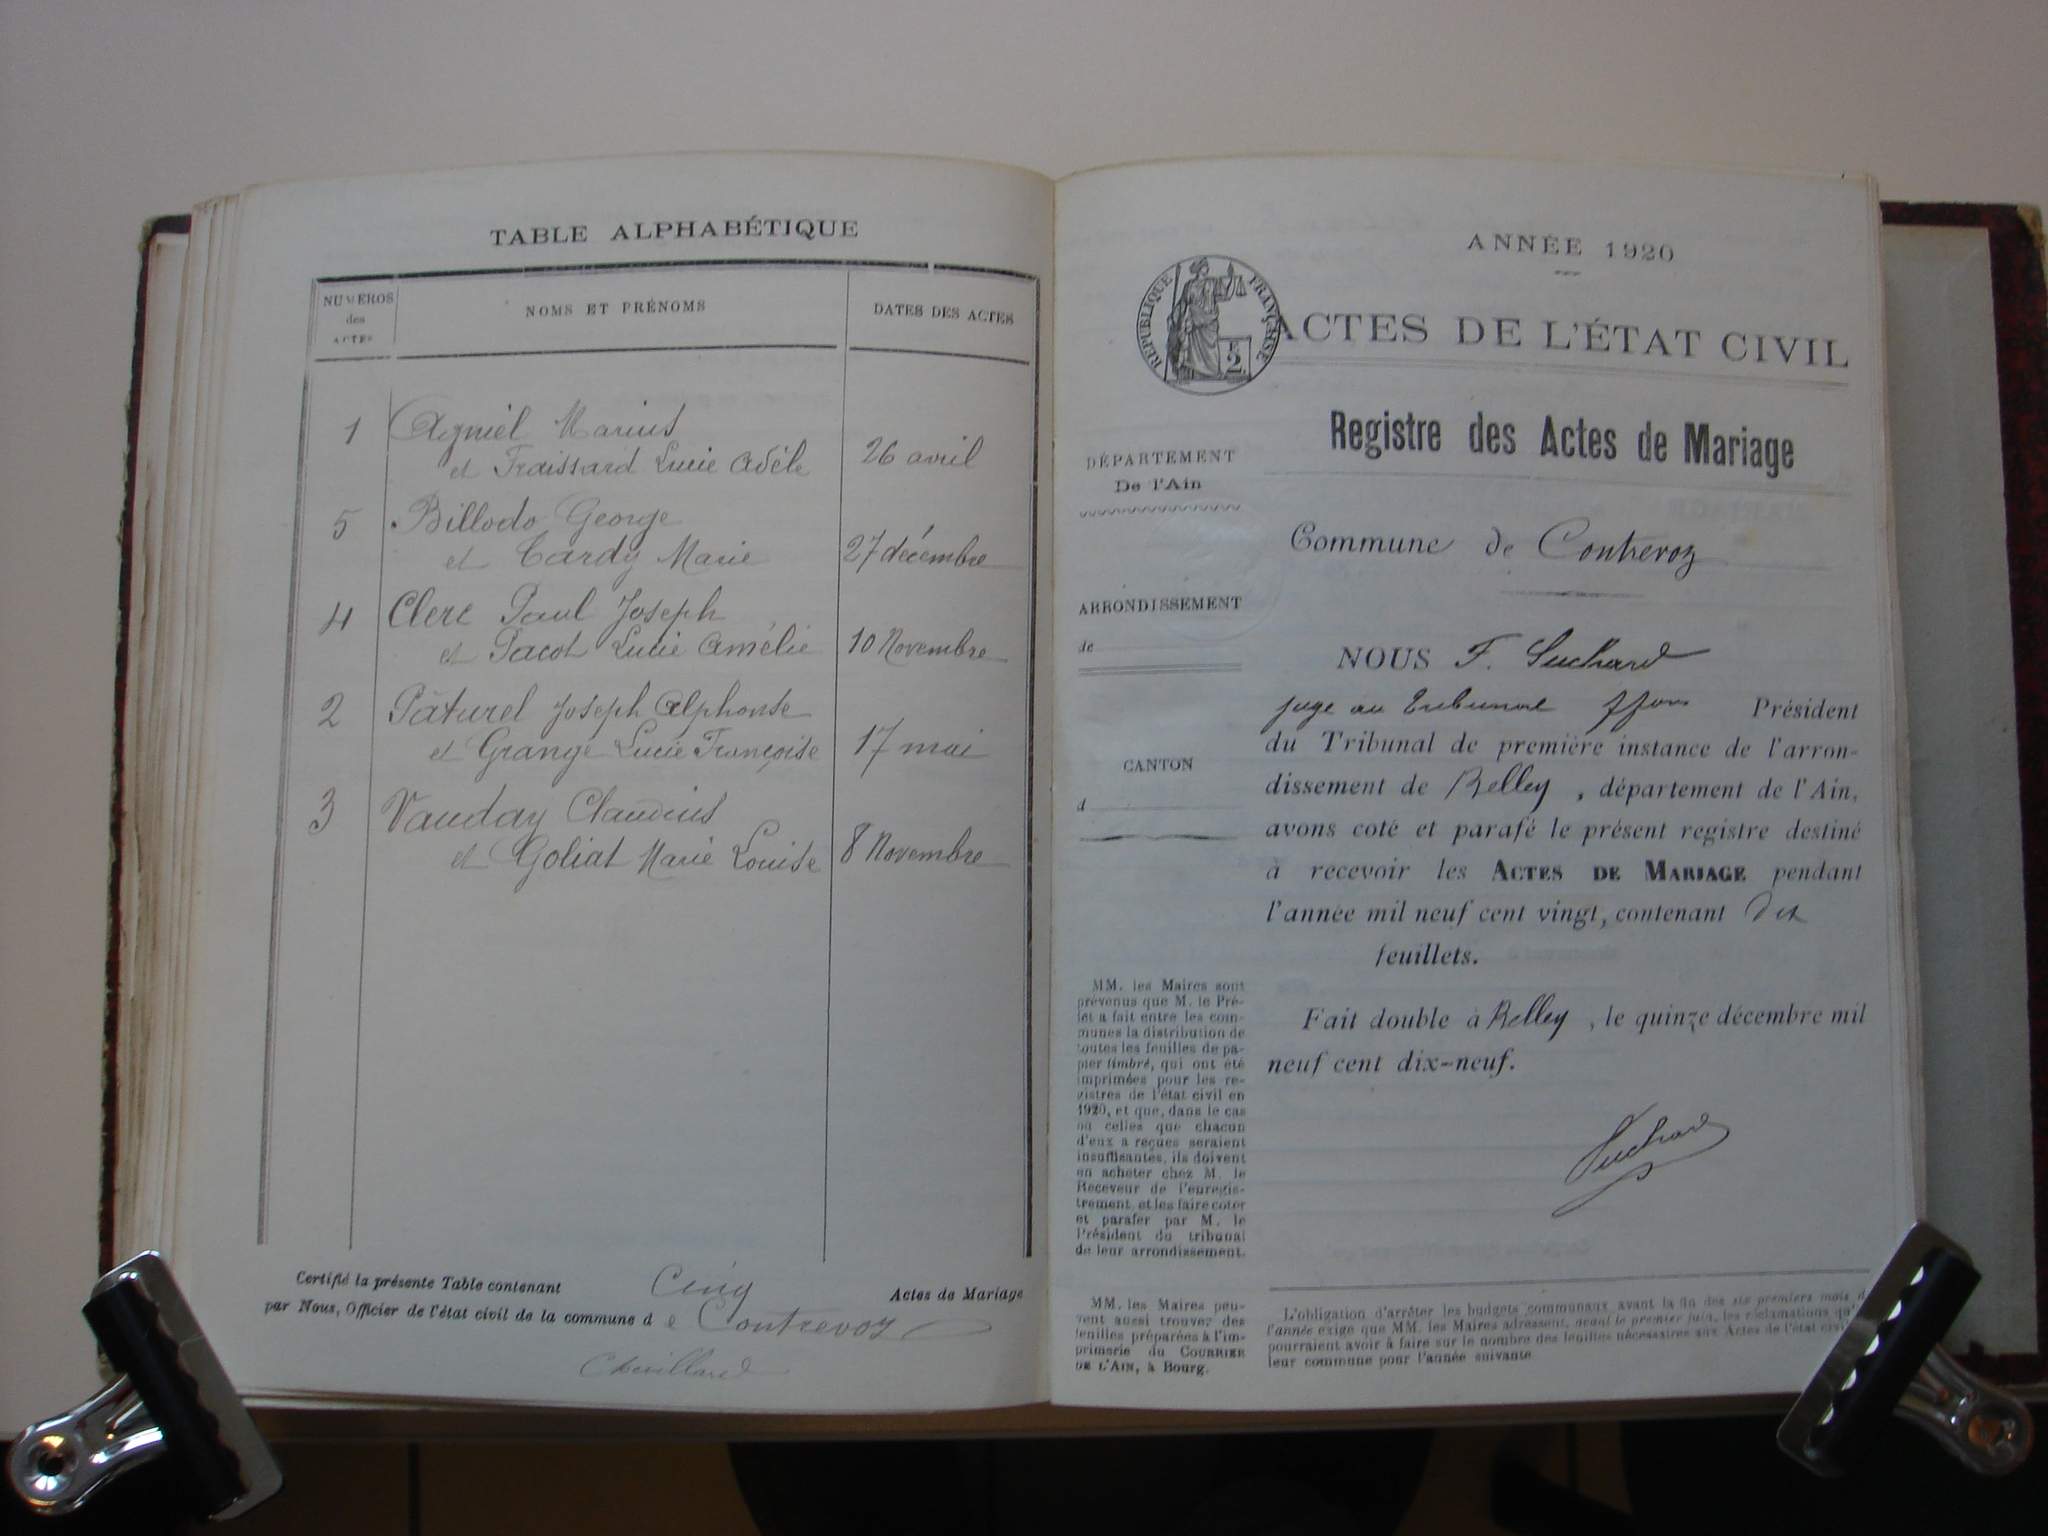 TABLE ALPHABÉTIQUE
NUMÉROS
des
ACTES
NOMS ET PRÉNOMS
DATES DES ACTES
1 Agniel Marius
et Fraissard Lucie Adèle 26 avril
5 Billodo George
et Tardy Marie 27 décembre
4 Clerc Paul Joseph
et Pacot Lucie Amélie 10 Novembre
2 Pâturel Joseph Alphonse
et Grange Lucie Françoise 17 mai
3 Vauday Claudius
et Goliat Marie Louise 8 Novembre
Certifié la présente Table contenant Cinq Actes de Mariage
par Nous, Officier de l'état civil de la commune de Contrevoz
Chevillard
ANNÉE 1920
RÉPUBLIQUE FRANÇAISE
2
ACTES DE L'ÉTAT CIVIL
Registre des Actes de Mariage
DÉPARTEMENT
De l'Ain
ARRONDISSEMENT
de
CANTON
d
MM. les Maires sont
prévenus que M. le Pré-
fet a fait entre les com-
munes la distribution de
toutes les feuilles de pa-
pier timbré, qui ont été
imprimées pour les re-
gistres de l'état civil en
1920, et que, dans le cas
où celles que chacun
d'eux a reçues seraient
insuffisantes, ils doivent
en acheter chez M. le
Receveur de l'enregis-
trement, et les faire coter
et parafer par M. le
Président du tribunal
de leur arrondissement.
MM. les Maires peu-
vent aussi trouver des
feuilles préparées à l'im-
primerie du COURRIER
DE L'AIN, à Bourg.
Commune de Contrevoz
NOUS F. Suchard
juge au Tribunal ffons Président
du Tribunal de première instance de l'arron-
dissement de Belley, département de l'Ain,
avons coté et parafé le présent registre destiné
à recevoir les ACTES DE MARIAGE pendant
l'année mil neuf cent vingt, contenant dix
feuillets.
Fait double à Belley, le quinze décembre mil
neuf cent dix-neuf.
Suchard
L'obligation d'arrêter les budgets communaux avant la fin des six premiers mois d
l'année exige que MM. les Maires adressent, avant le premier juin, les réclamations qu'i
pourraient avoir à faire sur le nombre des feuilles nécessaires aux Actes de l'état civil
leur commune pour l'année suivante